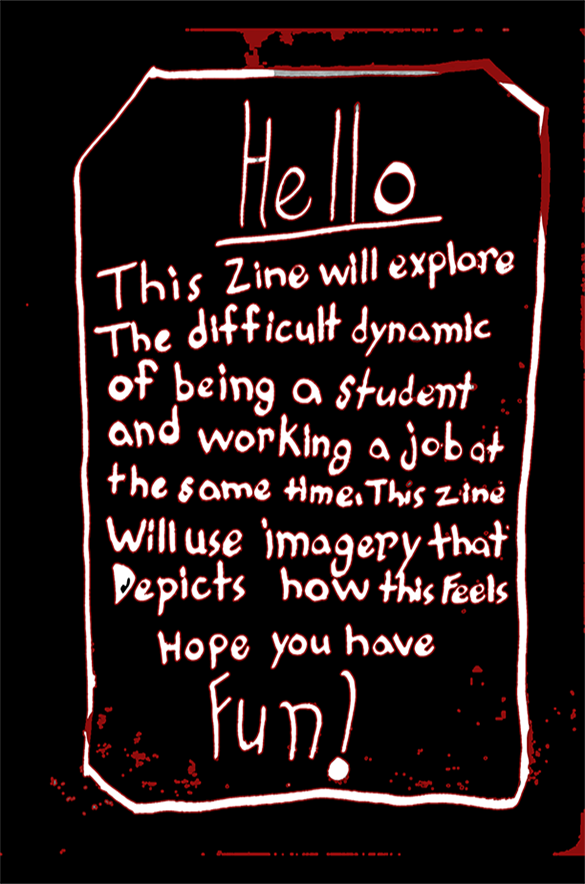 Hello
This Zine will explore
The difficult dynamic
of being a student
and working a job at
the same time. This zine
Will use imagery that
Depicts how this Feels
Hope you have
Fun!